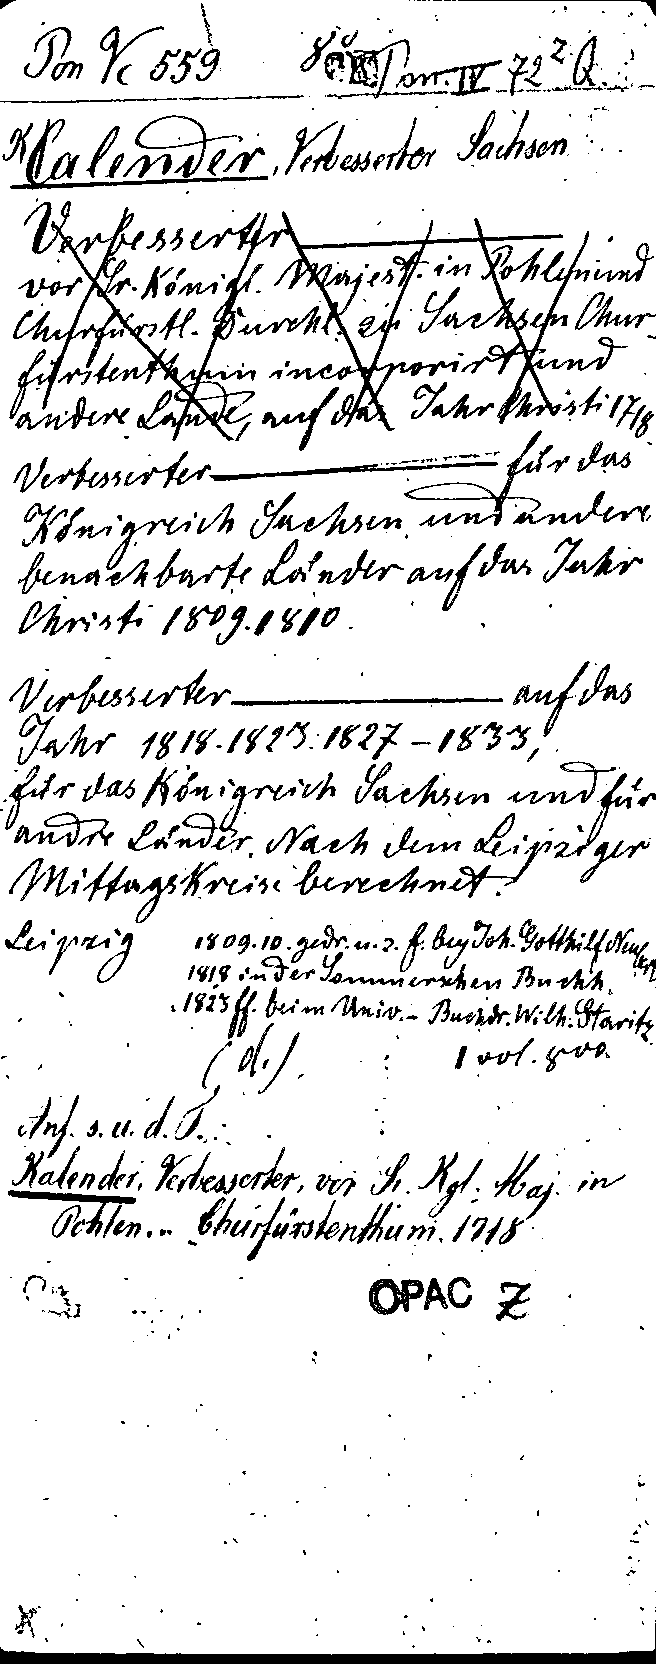 Pon Vc 559 8° Pon. IV 72² Q.
Kalender, Verbesserter Sachsen
Verbesserter ———
vor Sr. Königl. Majest. in Pohlen und
Churfürstl. Durchl. zu Sachsen Chur-
fürstenthum incorporirt und
andere Lande, auf das Jahr Christi 1718
Verbesserter ——— für das
Königreich Sachsen und andere
benachbarte Länder auf das Jahr
Christi 1809.1810.
Verbesserter ——— auf das
Jahr 1818.1823.1827–1833,
für das Königreich Sachsen und für
andre Länder. Nach dem Leipziger
Mittagskreise berechnet.
Leipzig 1809.10. gedr. u. z. f. bey Joh. Gotthilf
1818 in der Sommerschen Buchh.
1823 ff. beim Univ.- Buchdr. Wilh. Staritz
(d.) 1 vol. 8vo.
Anf. s. u. d. T.:
Kalender, Verbesserter, vor Sr. Kgl. Maj. in
Pohlen... Churfürstenthum. 1718
OPAC Z